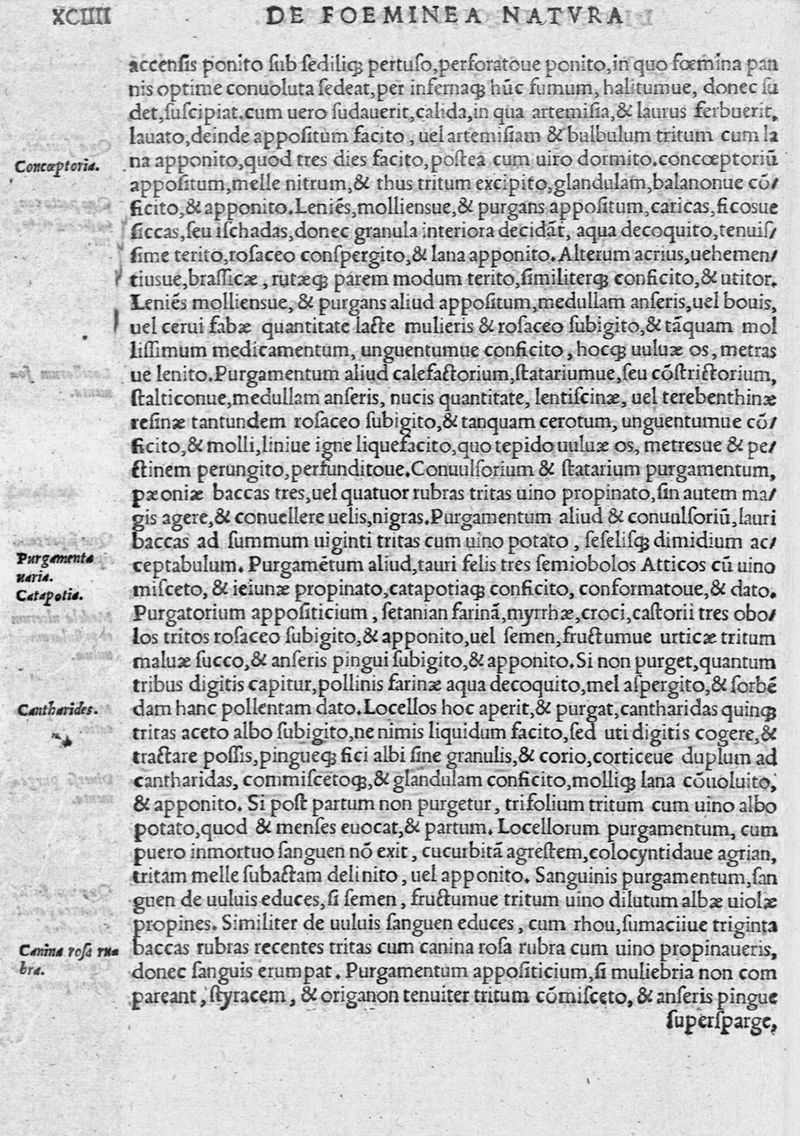 XCIIII DE FOEMINEA NATVRA
accensis ponito sub sediliq; pertuso,perforatoue ponito,in quo fœmina pan
nis optime conuoluta sedeat,per infernaq; hūc fumum, halitumue, donec su
det,suscipiat.cum uero sudauerit,calida,in qua artemisia,& laurus ferbuerit,
lauato,deinde appositum facito, uel artemisiam & bulbulum tritum cum la
Concœptoria.
na apponito,quod tres dies facito,postea cum uiro dormito.concœptoriū
appositum,melle nitrum,& thus tritum excipito,glandulam,balanonue cō/
ficito,& apponito.Leniēs,molliensue,& purgans appositum,caricas,ficosue
siccas,seu ischadas,donec granula interiora decidāt, aqua decoquito,tenuis/
sime terito,rosaceo conspergito,& lana apponito.Alterum acrius,uehemen/
tiusue,brassicæ, rutæq; parem modum terito,similiterq; conficito,& utitor.
Leniēs molliensue, & purgans aliud appositum,medullam anseris,uel bouis,
uel cerui fabæ quantitate lacte mulieris & rosaceo subigito,& tāquam mol
lissimum medicamentum, unguentumue conficito, hocq; uuluæ os, metras
ue lenito.Purgamentum aliud calefactorium,statariumue,seu cōstrictorium,
stalticonue,medullam anseris, nucis quantitate, lentiscinæ, uel terebenthinæ
resinæ tantundem rosaceo subigito,& tanquam cerotum, unguentumue cō/
ficito,& molli,liniue igne liquefacito,quo tepido uuluæ os, metresue & pe/
ctinem perungito,perfunditoue.Conuulsorium & statarium purgamentum,
pæoniæ baccas tres,uel quatuor rubras tritas uino propinato,sin autem ma/
gis agere,& conuellere uelis,nigras.Purgamentum aliud & conuulsoriū,lauri
baccas ad summum uiginti tritas cum uino potato, seselisq; dimidium ac/
Purgamenta
uaria.
Catapotia.
ceptabulum. Purgamētum aliud,tauri felis tres semiobolos Atticos cū uino
misceto, & ieiunæ propinato,catapotiaq; conficito, conformatoue,& dato.
Purgatorium appositicium, setanian farinā,myrrhæ,croci,castorii tres obo/
los tritos rosaceo subigito,& apponito,uel semen,fructumue urticæ tritum
maluæ succo,& anseris pingui subigito,& apponito.Si non purget,quantum
tribus digitis capitur,pollinis farinæ aqua decoquito,mel aspergito,& sorbē
Cantharides.
dam hanc pollentam dato.Locellos hoc aperit,& purgat,cantharidas quinq;
tritas aceto albo subigito,ne nimis liquidum facito,sed uti digitis cogere,&
tractare possis,pingueq; fici albi sine granulis,& corio,corticeue duplum ad
cantharidas, commiscetoq;,& glandulam conficito,molliq; lana cōuoluito,
& apponito. Si post partum non purgetur, trifolium tritum cum uino albo
potato,quod & menses euocat,& partum. Locellorum purgamentum, cum
puero inmortuo sanguen nō exit, cucurbitā agrestem,colocyntidaue agrian,
tritam melle subactam delinito, uel apponito. Sanguinis purgamentum,san
guen de uuluis educes, si semen, fructumue tritum uino dilutum albæ uiolæ
propines. Similiter de uuluis sanguen educes, cum rhou,sumaciiue triginta
Canina rosa ru=
bra.
baccas rubras recentes tritas cum canina rosa rubra cum uino propinaueris,
donec sanguis erumpat. Purgamentum appositicium,si muliebria non com
pareant, styracem, & origanon tenuiter tritum cōmisceto, & anseris pingue
supersparge,